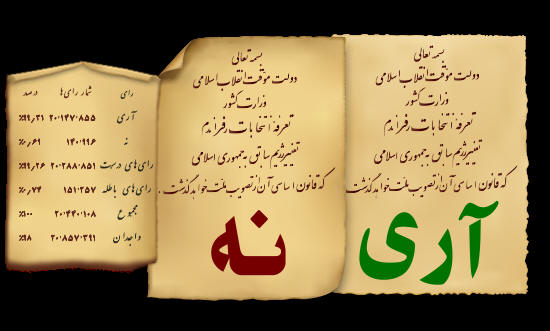 بسمه تعالی
دولت موقت انقلاب اسلامی
وزارت کشور
تعرفه انتخابات رفراندم
تغییر رژیم سابق به جمهوری اسلامی
که قانون اساسی آن از تصویب ملت خواهد گذشت
آری
بسمه تعالی
دولت موقت انقلاب اسلامی
وزارت کشور
تعرفه انتخابات رفراندم
تغییر رژیم سابق به جمهوری اسلامی
که قانون اساسی آن از تصویب ملت خواهد گذشت.
نه
رای شمار رای‌ها درصد
آری ۲۰٬۱۴۷٬۸۵۵ ٪۹۹٫۳۱
نه ۱۴۰٬۹۹۶ ٪۰٫۶۹
رای‌های درست ۲۰٬۲۸۸٬۸۵۱ ٪۹۹٫۲۶
رای‌های باطله ۱۵۱٬۲۵۷ ٪۰٫۷۴
مجموع ۲۰٬۴۴۰٬۱۰۸ ٪۱۰۰
واجدان ۲۰٬۸۵۷٬۳۹۱ ٪۹۸